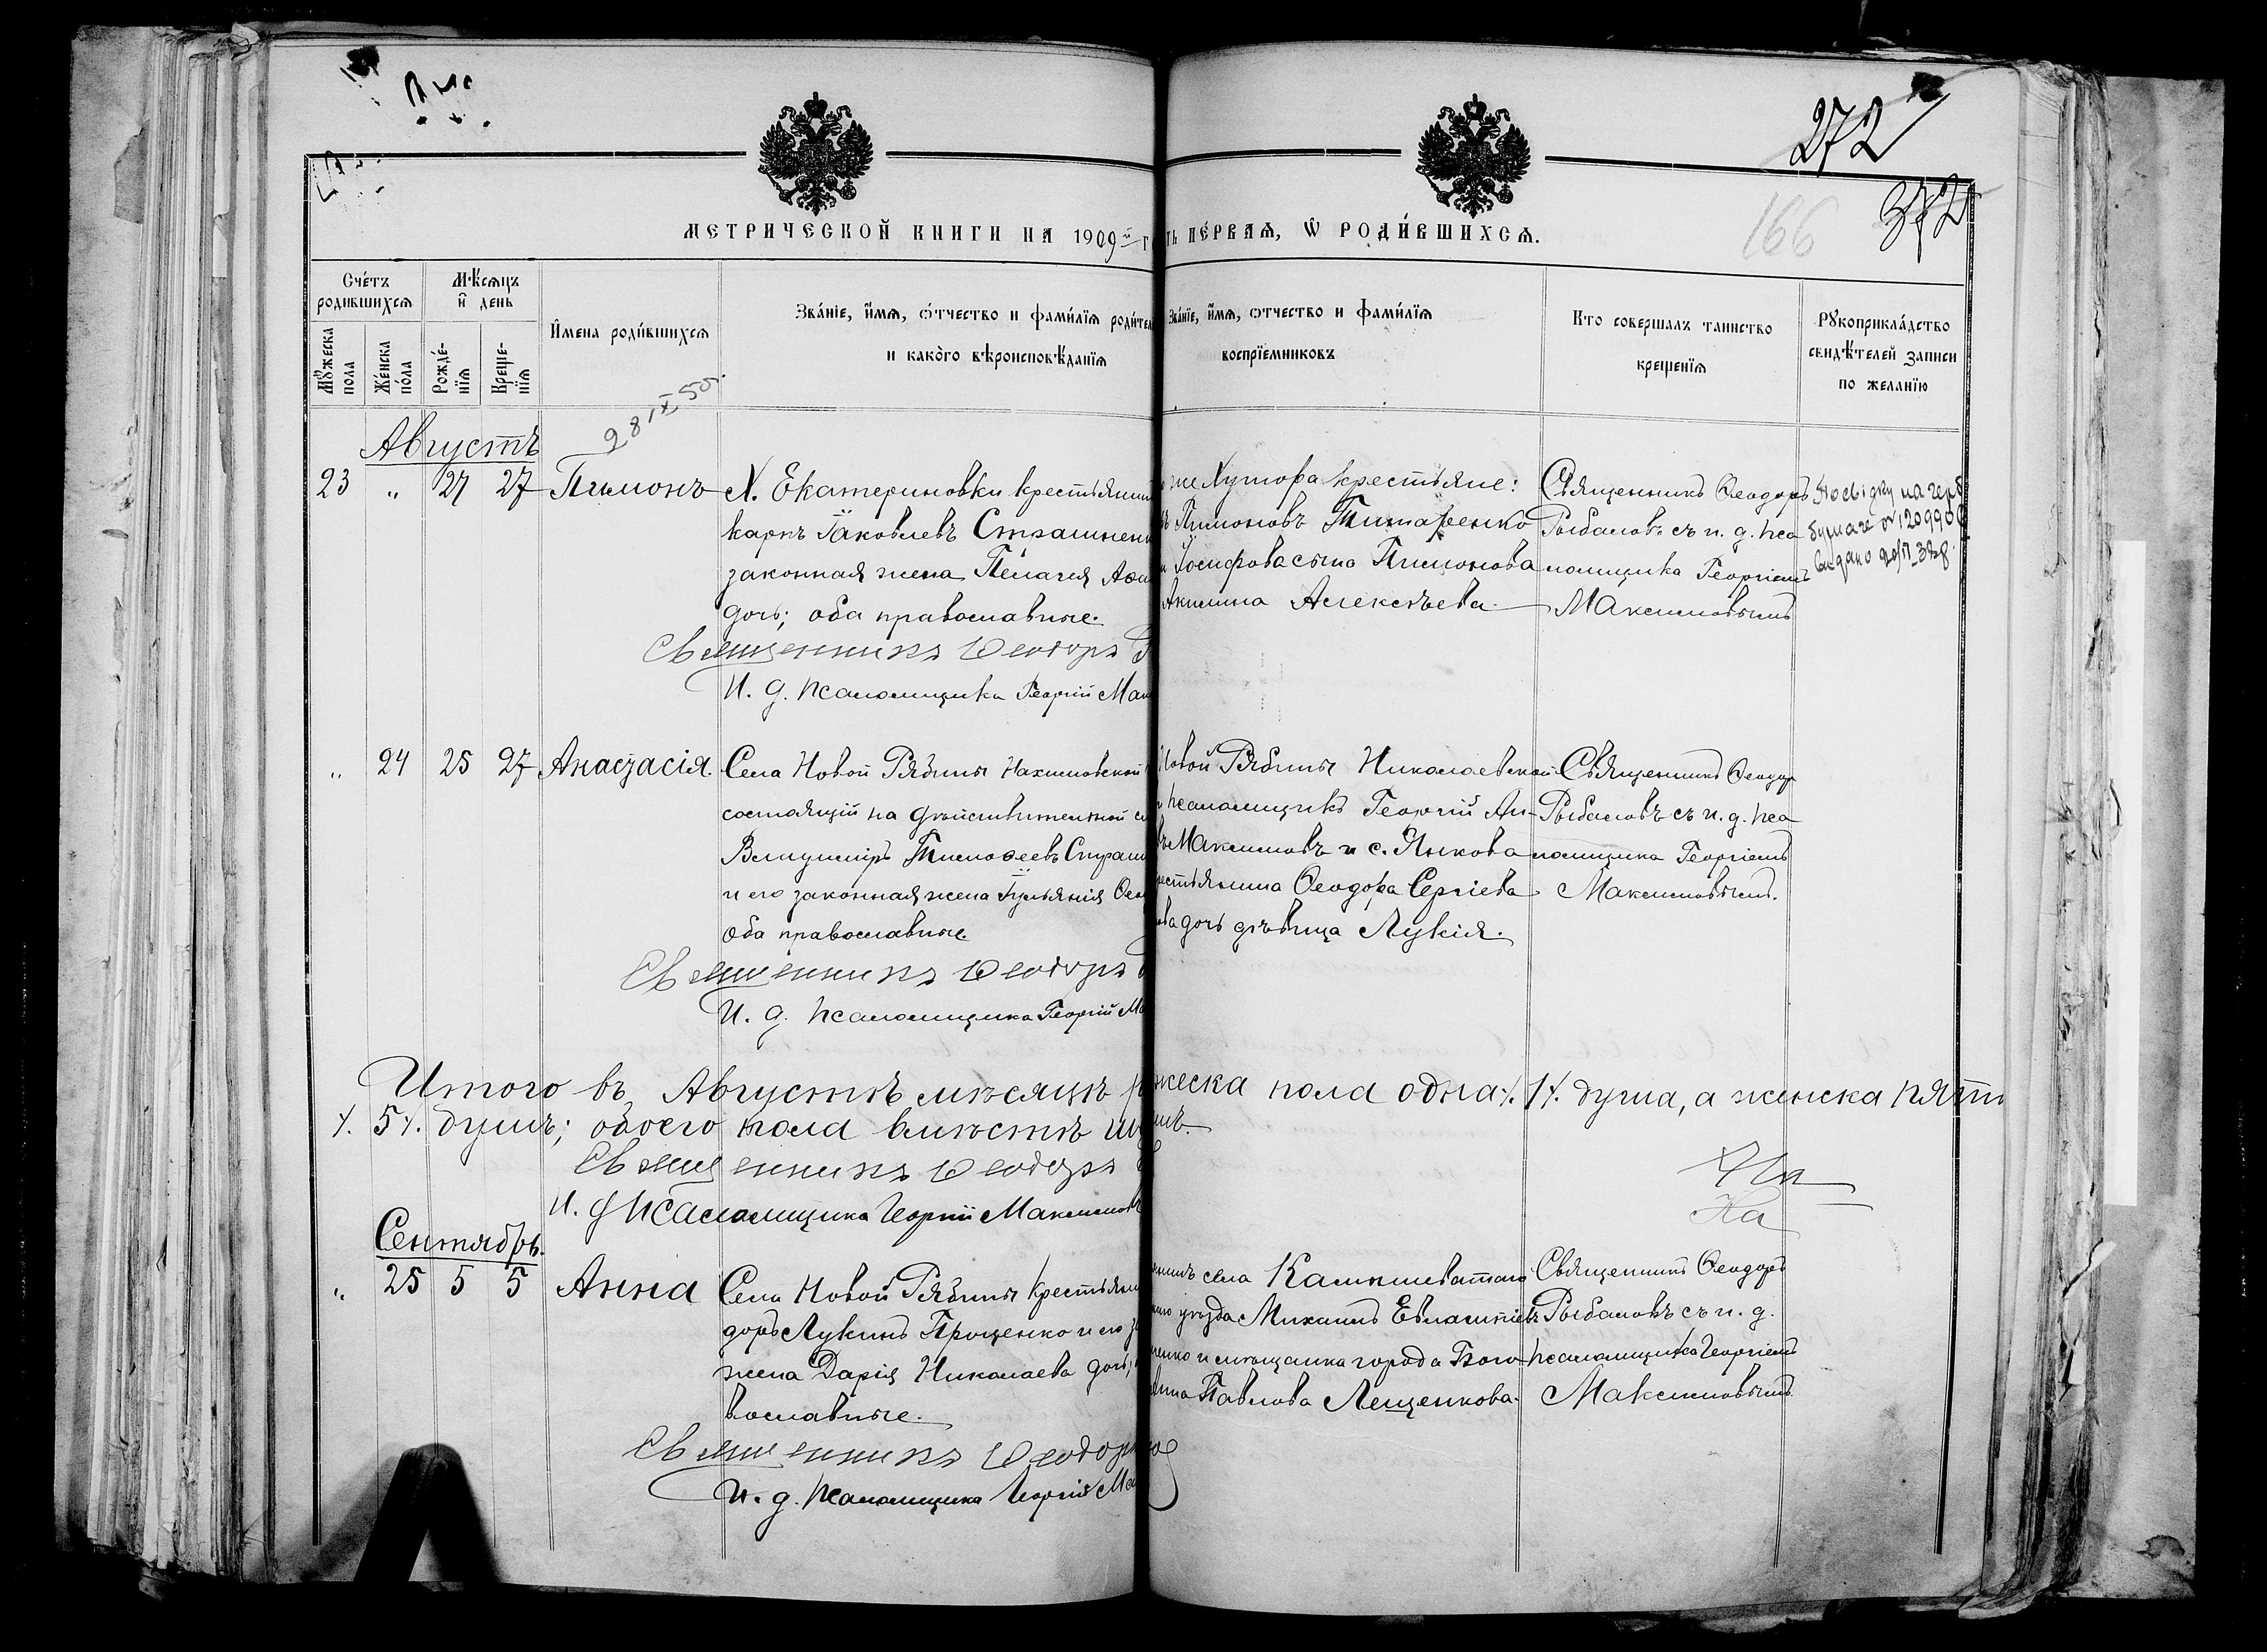 272
372
166
МЕТРИЧЕСКОЙ КНИГИ НА 1909й
ПЕРВАЯ, Ѡ РОДИ́ВШИХСЯ.
Счетъ родившихся
Мѣсяцъ и день
Мужеска пола
Женска пола
Рожде-нія
Креще-нія
Имена родившихся
Званіе, имя, отчество и фамилія родител
и какого вѣроисповѣданія
Званіе, имя, отчество и фамилія
воспріемниковъ
Кто совершалъ таинство
крещенія
Рукоприкладство
свидѣтелей записи
по желанію
28 IX 50.
Августъ
23 " 27 27 Пимонъ
Х. Екатериновки крестьянин
карпъ Іаковлевъ Страшнен
законная жена Пелагія
дочь; оба православные.
Священникъ Ѳеодоръ
И. д. псаломщика Георгій Мак
же Хутора крестьяне:
Пимоновъ Титаренко
Іосифова сына Пимонова
Акилина Алексѣева
Священникъ Ѳеодоръ
Рыбаловъ съ и. д. пса
ломщика Георгіемъ
Максимовымъ
" 24 25 27 Анастасія.
Села Новой Рябины Нахимовской
состоящій на дѣйствительной
Владиміръ Тимоѳеевъ Страш
и его законная жена Іуліанія Ѳео
оба православные
Священникъ Ѳеодоръ
И. д. псаломщика Георгій Ма
Новой Рябины Николаевской
псаломщикъ Георгій Ан-
Максимовъ и с. Янкова
естьянина Ѳеодора Сергіева
ова дочь дѣвица Лукія.
Священникъ Ѳеодор
Рыбаловъ съ и. д. пса
ломщика Георгіемъ
Максимовымъ.
Итого въ Августѣ мѣсяцѣ
жеска пола одна ∕. 1 ∕. душа, а женска пять
∕. 5 ∕. душъ; обоего пола вмѣстѣ
Священникъ Ѳеодоръ
И. д. псаломщика Георгій Максимов
Сентябрь.
" 25 5 5 Анна
Села Новой Рябины крестьян
доръ Лукинъ Проценко и его з
жена Дарія Николаева дочь;
вославные.
Священникъ Ѳеодоръ
И. д. псаломщика Георгій Ма
села Камышеватаго
уѣзда Михаилъ Евлампіевъ
енко и мѣщанка города Бого
Павлова Лещенкова.
Священникъ Ѳеодоръ
Рыбаловъ съ и. д.
псаломщика Георгіемъ
Максимовымъ.